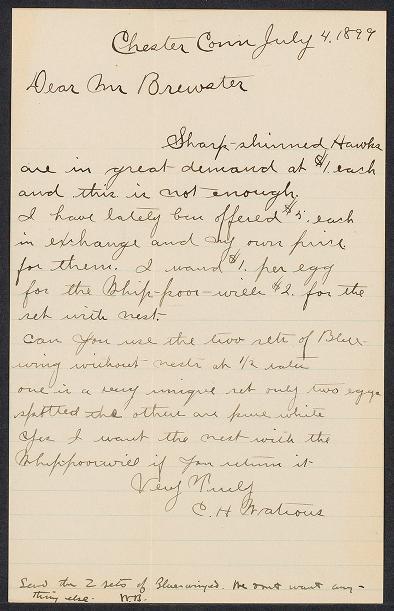 Chester Conn July 4, 1899
Dear Mr Brewster
Sharp-shinned Hawks
are in great demand at $1. each
and this is not enough.
I have lately ben offered $5. each
in exchange and my own price
for them. I want $1. per egg
for the Whip-poor-wills $2. for the
set with nest.
Can you use the two sets of Blue-
wing without nests at 1/2 rates
one is a very unique set only two eggs
spotted the others are pure white
Yes I want the nest with the
Whippoorwill if you return it
Very Truly
C. H Watrous
Send the 2 sets of Bluewinged. We dont want any-
thing else. W.B.